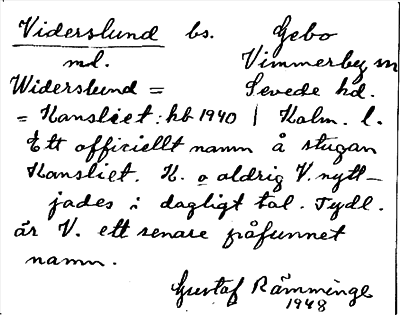 Viderslund bs. Gebo
md. Vimmerby sn
Widerslund = Sevede hd.
= Kansliet: hb 1940 | Kalm. l.
Ett officiellt namn å stugan
Kansliet. K. o aldrig V. nytt-
jades i dagligt tal. Tydl.
är V. ett senare påfunnet
namn.
Gustaf Rämminge
1948